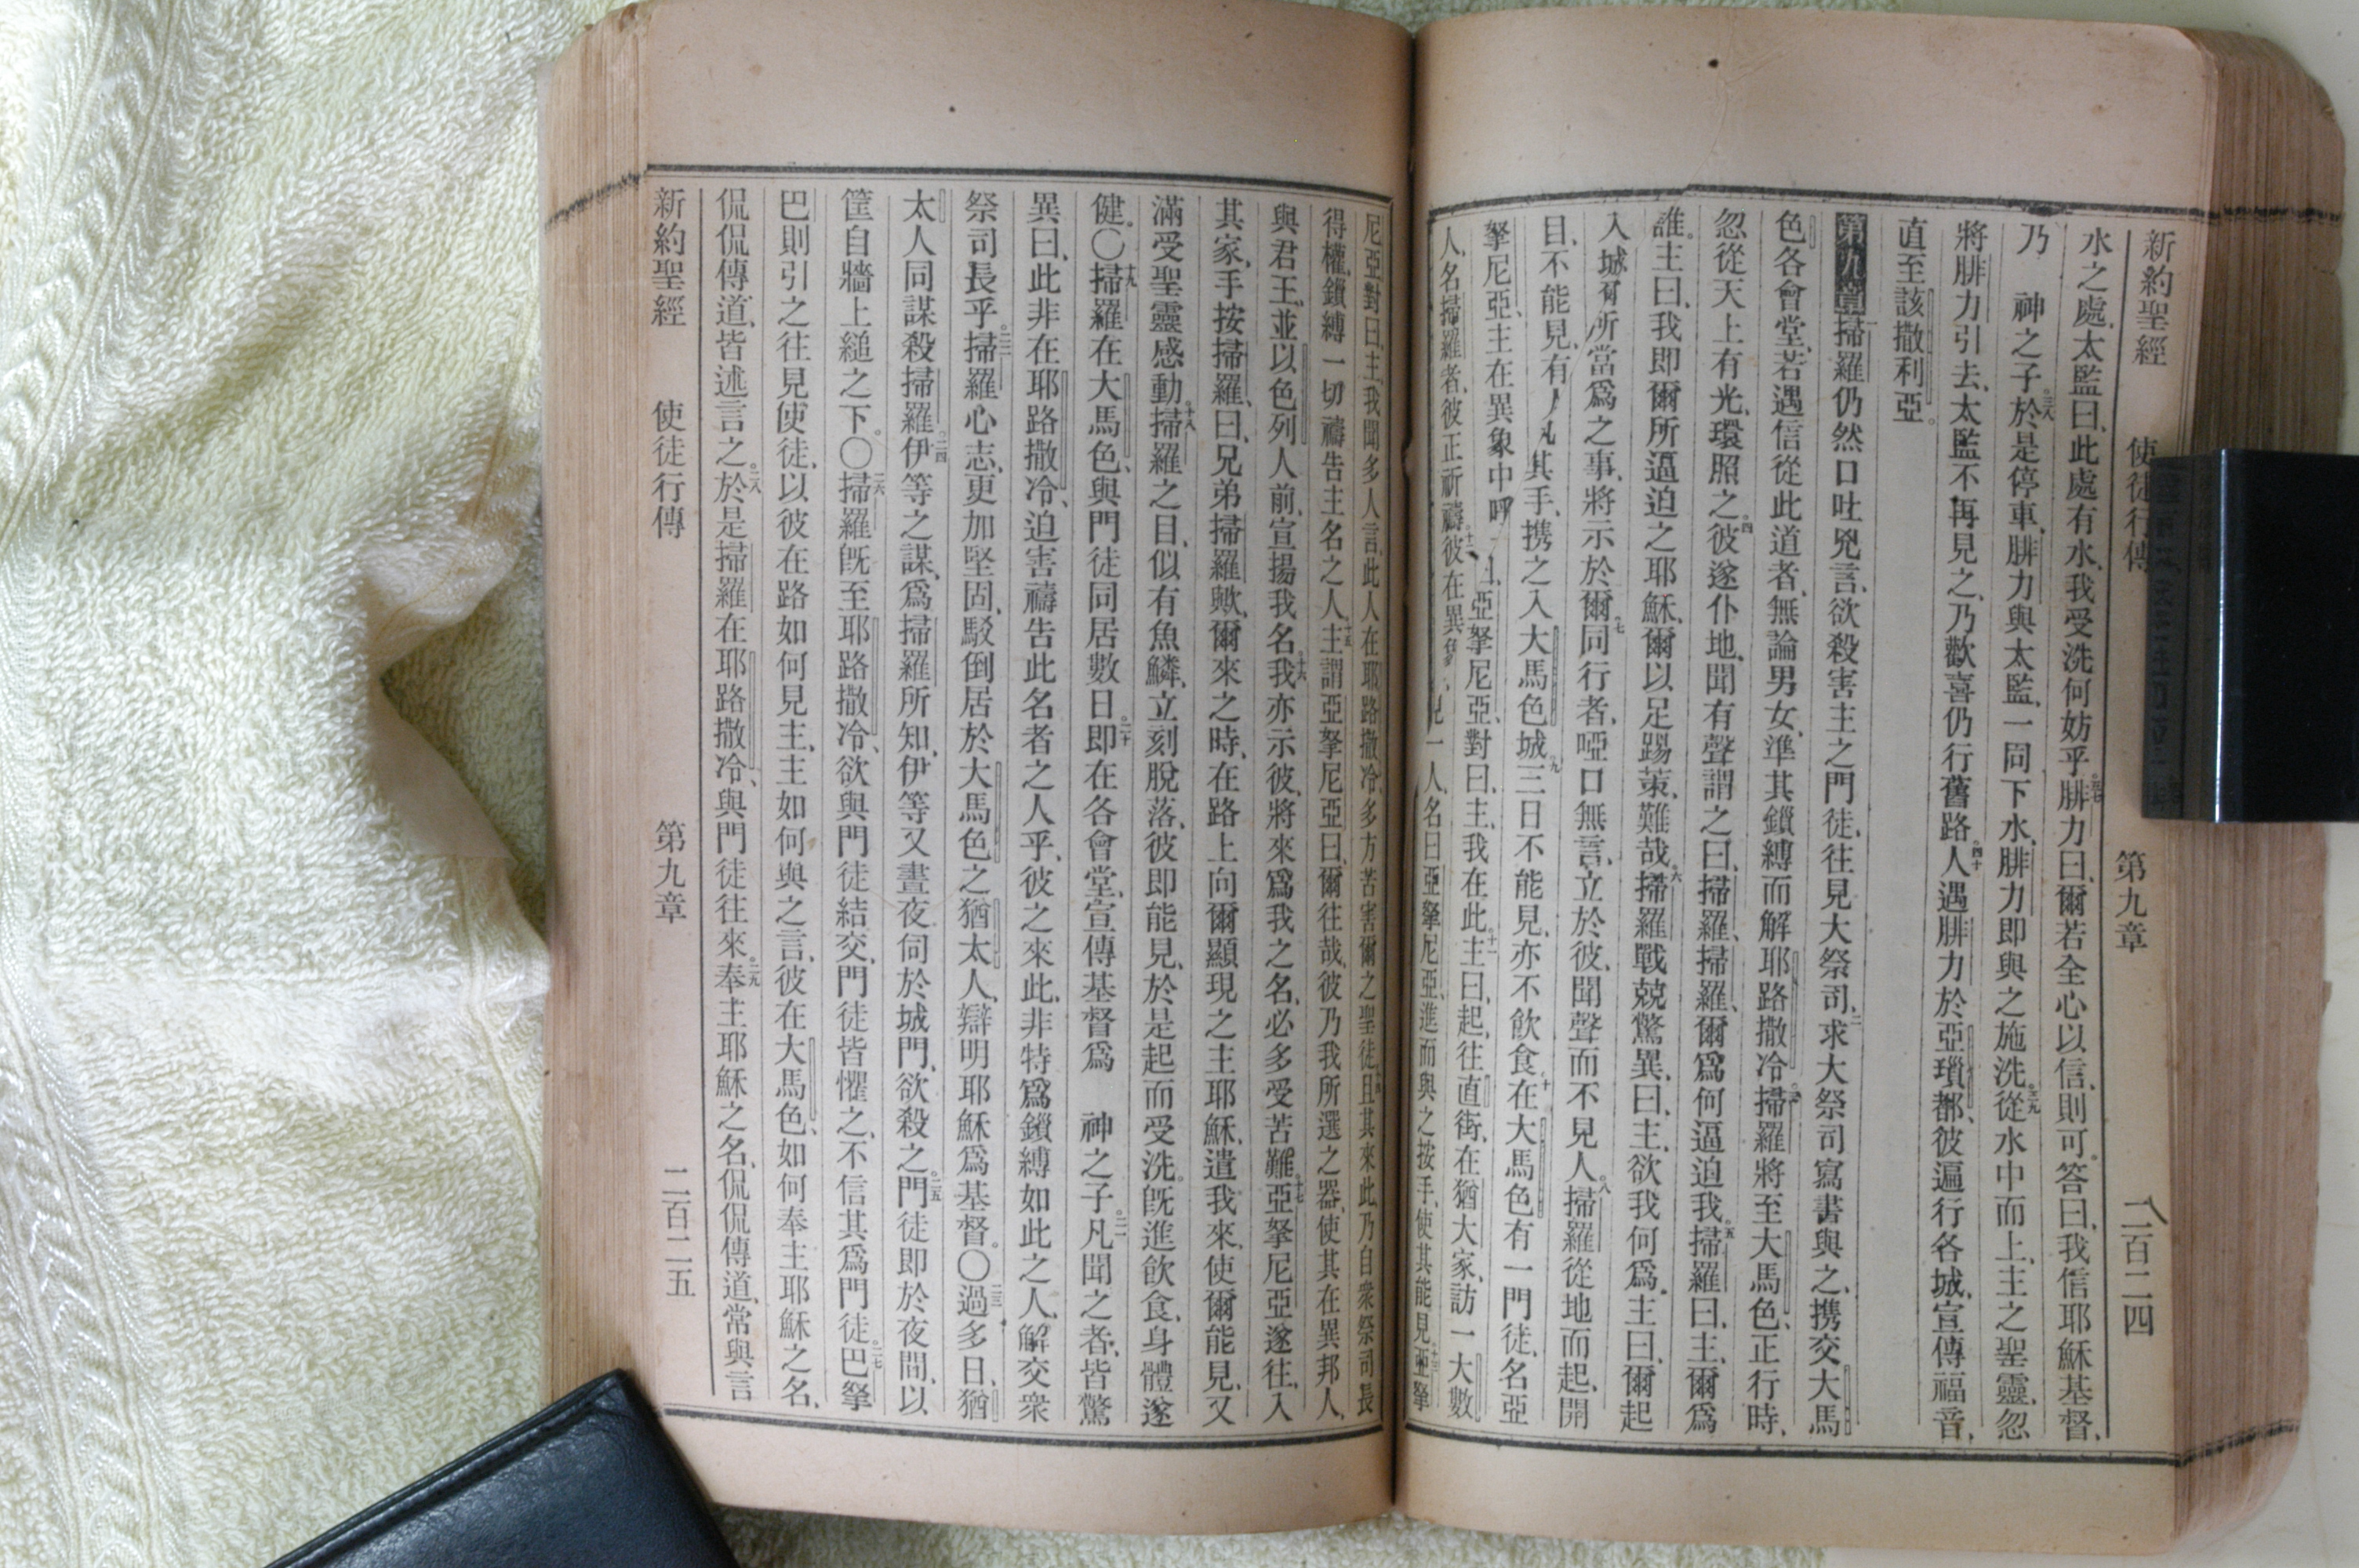 新約聖經 使徒行傳 第九章 二百二四
水之處、太監曰、此處有水、我受洗何妨乎。三七腓力曰、爾若全心以信、則可。答曰、我信耶穌基督、
乃 神之子。三八於是停車、腓力與太監、一同下水、腓力即與之施洗。三九從水中而上、主之聖靈、忽
將腓力引去、太監不再見之、乃歡喜仍行舊路。四十人遇腓力於亞瑣都、彼遍行各城、宣傳福音、
直至該撒利亞。
第九章掃羅仍然口吐兇言、欲殺害主之門徒、往見大祭司、二求大祭司寫書與之、携交大馬
色各會堂、若遇信從此道者、無論男女、準其鎖縛而解耶路撒冷。三掃羅將至大馬色、正行時、
忽從天上有光、環照之。四彼遂仆地、聞有聲謂之曰、掃羅、掃羅、爾爲何逼迫我。五掃羅曰、主、爾爲
誰。主曰、我即爾所逼迫之耶穌、爾以足踢策、難哉。六掃羅戰兢驚異、曰、主、欲我何爲。主曰、爾起
入城、有所當爲之事、將示於爾。七同行者、啞口無言、立於彼、聞聲而不見人。八掃羅從地而起、開
目、不能見、有人 其手、携之入大馬色城。九三日不能見、亦不飲食。十在大馬色有一門徒、名亞
拏尼亞、主在異象中呼 曰、亞拏尼亞、對曰、主、我在此。十一主曰、起、往直街、在猶大家、訪一大數
人、名掃羅者、彼正祈禱。十二彼在異象 見一人、名曰亞拏尼亞、進而與之按手、使其能見。十三亞拏
尼亞對曰、主、我聞多人言、此人在耶路撒冷、多方苦害爾之聖徒、十四且其來此、乃自衆祭司長
得權、鎖縛一切禱告主名之人。十五主謂亞拏尼亞曰、爾往哉、彼乃我所選之器、使其在異邦人、
與君王、並以色列人前、宣揚我名。十六我亦示彼、將來爲我之名、必多受苦難。十七亞拏尼亞遂往、入
其家、手按掃羅、曰、兄弟掃羅歟、爾來之時、在路上向爾顯現之主耶穌、遣我來、使爾能見、又
滿受聖靈感動。十八掃羅之目、似有魚鱗、立刻脫落、彼即能見、於是起而受洗。旣進飲食、身體遂
健。〇十九掃羅在大馬色、與門徒同居數日。二十即在各會堂、宣傳基督爲 神之子。二一凡聞之者、皆驚
異曰、此非在耶路撒冷、迫害禱告此名者之人乎、彼之來此、非特爲鎖縛如此之人、解交衆
祭司長乎。二二掃羅心志、更加堅固、駁倒居於大馬色之猶太人、辯明耶穌爲基督。〇二三過多日、猶
太人同謀殺掃羅。二四伊等之謀、爲掃羅所知、伊等又晝夜伺於城門、欲殺之。二五門徒即於夜間、以
筐自牆上縋之下。〇二六掃羅旣至耶路撒冷、欲與門徒結交、門徒皆懼之、不信其爲門徒。二七巴拏
巴則引之往見使徒、以彼在路如何見主、主如何與之言、彼在大馬色、如何奉主耶穌之名、
侃侃傳道、皆述言之。二八於是掃羅在耶路撒冷、與門徒往來。二九奉主耶穌之名、侃侃傳道、常與言
新約聖經 使徒行傳 第九章 二百二五